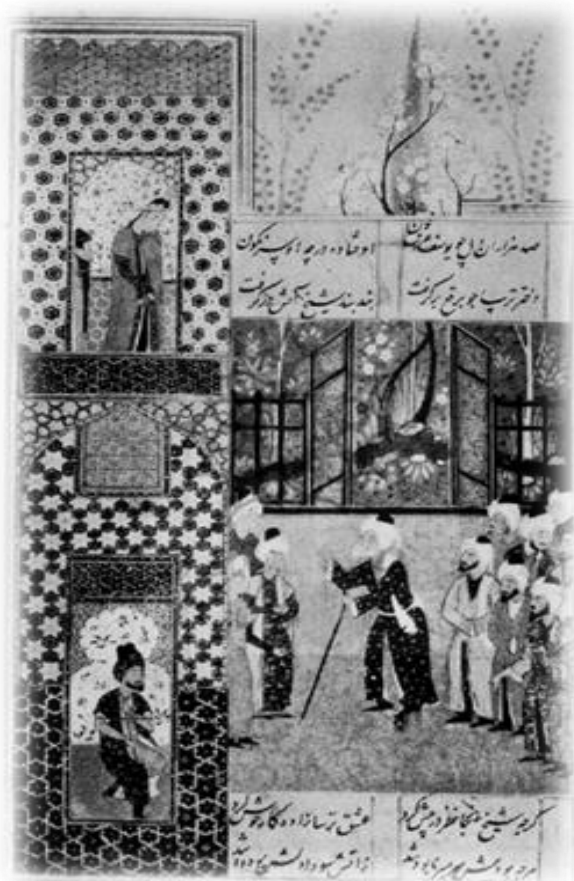 صد هزاران دل چو یوسف غرق خون اوفتاده در چه او سرنگون
دختر ترسا چو برقع برگرفت بند بند شیخ آتش درگرفت
گرچه شیخ آنجا نظر در پیش کرد عشق ترسازاده کار خویش کرد
هرچه بودش سر بسر نابود شد زاتش سودا دلش دود شد